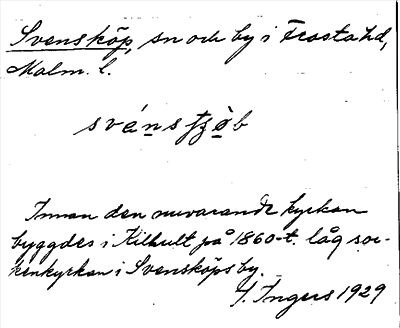 Svensköp, sn och by i Frosta hd,
Malm. l.
Innan den nuvarande kyrkan
byggdes i Kilhult på 1860-t. låg soc-
kenkyrkan i Svensköps by.
I. Ingers 1929